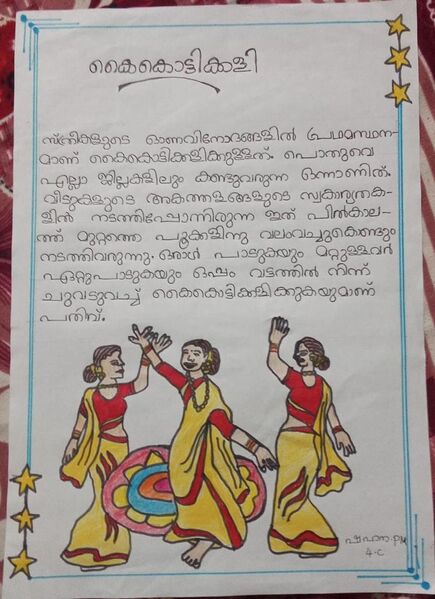 കൈകൊട്ടിക്കളി
സ്ത്രീകളുടെ ഓണവിനോദങ്ങളിൽ പ്രഥമസ്ഥാന-
മാണ് കൈകൊട്ടിക്കളിക്കുള്ളത്. പൊതുവെ
എല്ലാ ജില്ലകളിലും കണ്ടുവരുന്ന ഒന്നാണിത്.
വീടുകളുടെ അകത്തളങ്ങളുടെ സ്വകാര്യതക-
ളിൽ നടത്തിപ്പോന്നിരുന്ന ഇത് പിൽകാല-
ത്ത് മുറ്റത്തെ പൂക്കളിനു വലംവച്ചുകൊണ്ടും
നടത്തിവരുന്നു. ഒരാൾ പാടുകയും മറ്റുള്ളവർ
ഏറ്റുപാടുകയും ഒപ്പം വട്ടത്തിൽ നിന്ന്
ചുവടുവച്ച് കൈകൊട്ടിക്കളിക്കുകയുമാണ്
പതിവ്.
4-C